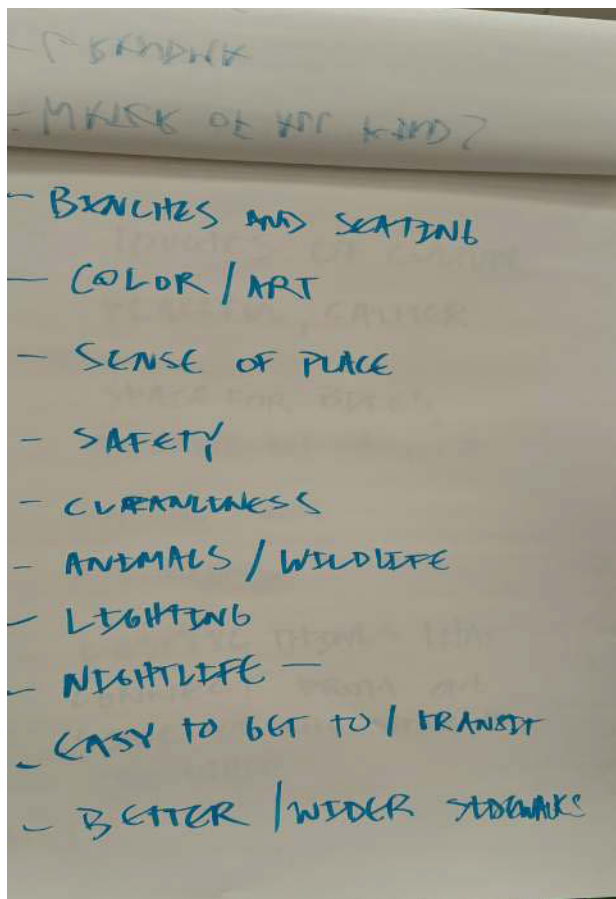 - BENCHES AND SEATING
- COLOR / ART
- SENSE OF PLACE
- SAFETY
- CLEANLINESS
- ANIMALS / WILDLIFE
- LIGHTING
- NIGHTLIFE -
- EASY TO GET TO / TRANSIT
- BETTER / WIDER SIDEWALKS